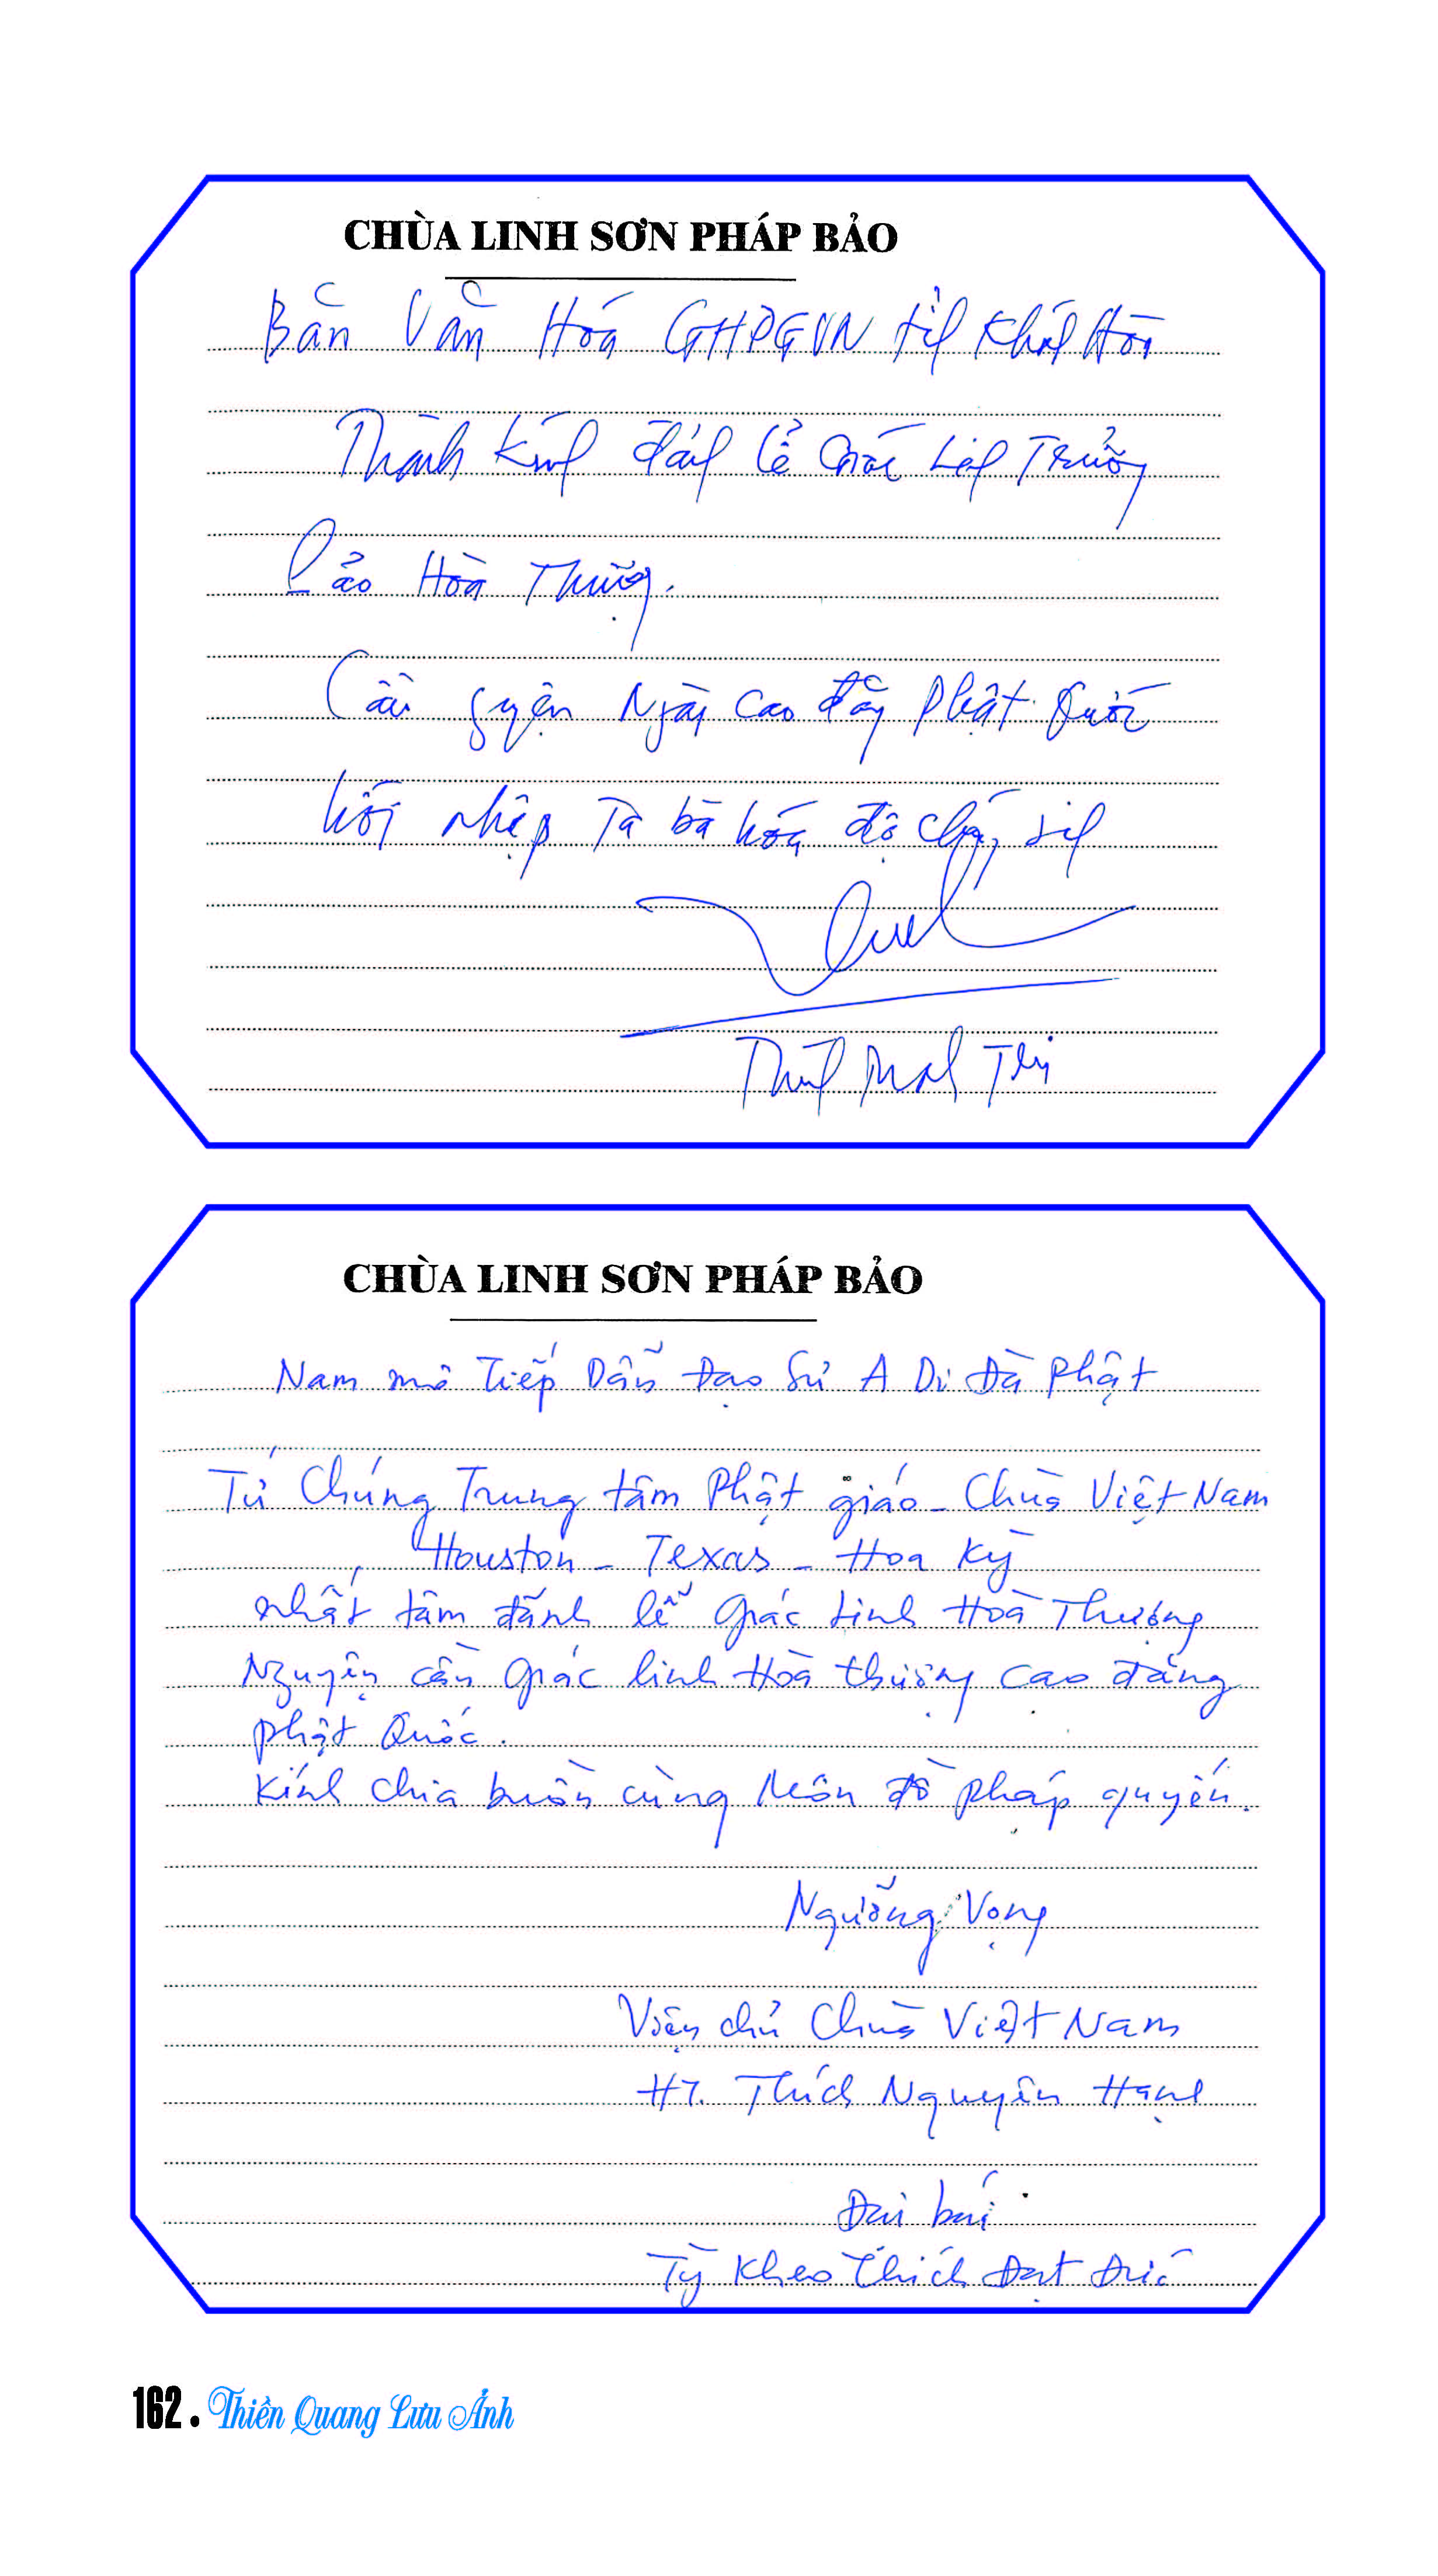 CHÙA LINH SƠN PHÁP BẢO
Ban Văn Hóa GHPGVN tỉnh Khánh Hòa
Thành kính đảnh lễ Giác Linh Trưởng
Lão Hòa Thượng.
Cầu nguyện Ngài cao đăng Phật Quốc
hồi nhập Ta bà hóa độ chúng sinh
Thích Minh
CHÙA LINH SƠN PHÁP BẢO
Nam mô Tiếp Dẫn Đạo Sư A Di Đà Phật
Tứ Chúng Trung tâm Phật giáo - Chùa Việt Nam
Houston - Texas - Hoa Kỳ
nhất tâm đảnh lễ Giác Linh Hoà Thượng
Nguyện cầu Giác linh Hòa thượng cao đăng
Phật Quốc.
Kính chia buồn cùng Môn đồ pháp quyến.
Ngưỡng Vọng
Viện chủ Chùa Việt Nam
HT. Thích Nguyên Hạnh
Đại bái
Tỳ Kheo Thích Đạt Đức
162. Thiền Quang Lưu Ảnh